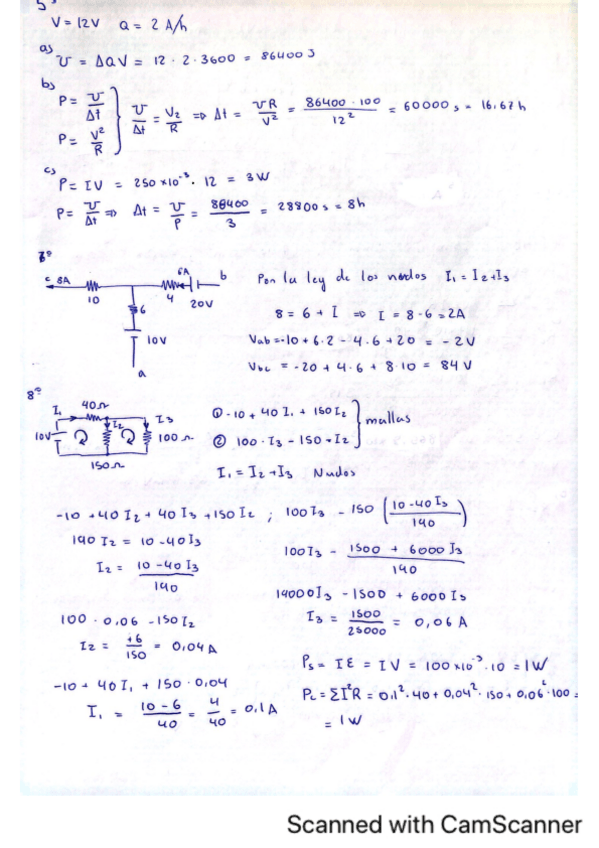 5º
V = 12V Q = 2 A/h
a)
U = ΔQV = 12 · 2 · 3600 = 86400 J
b)
P = U/Δt
P = V²/R
U/Δt = V²/R ⇒ Δt = UR/V² = 86400 · 100/12² = 60000 s = 16.67 h
c)
P = IV = 250 x10⁻³ · 12 = 3W
P = U/Δt ⇒ Δt = U/P = 86400/3 = 28800 s = 8h
7º
c 8A 10 4 6A 20V b
6
10V
a
Por la ley de los nodos I₁ = I₂+I₃
8 = 6 + I ⇒ I = 8-6 = 2A
Vab = -10 + 6·2 - 4·6 + 20 = -2V
Vbc = -20 + 4·6 + 8·10 = 84V
8º
I₁ 40Ω I₂ I₃
10V 100Ω
150Ω
① -10 + 40 I₁ + 150 I₂
② 100·I₃ - 150·I₂
mallas
I₁ = I₂+I₃ Nudos
-10 + 40 I₂ + 40 I₃ + 150 I₂ ; 100 I₃ - 150 (10-40I₃/190)
190 I₂ = 10 - 40I₃
I₂ = 10 - 40 I₃/190
100I₃ - 1500 + 6000 I₃/190
19000I₃ - 1500 + 6000 I₃
I₃ = 1500/25000 = 0,06 A
100 · 0,06 - 150 I₂
I₂ = +6/150 = 0,04 A
-10 + 40 I₁ + 150 · 0,04
I₁ = 10-6/40 = 4/40 = 0,1 A
Ps = IE = IV = 100x10⁻³ · 10 = 1W
PL = ΣI²R = 0,1² · 40 + 0,04² · 150 + 0,06² · 100 =
= 1W
Scanned with CamScanner